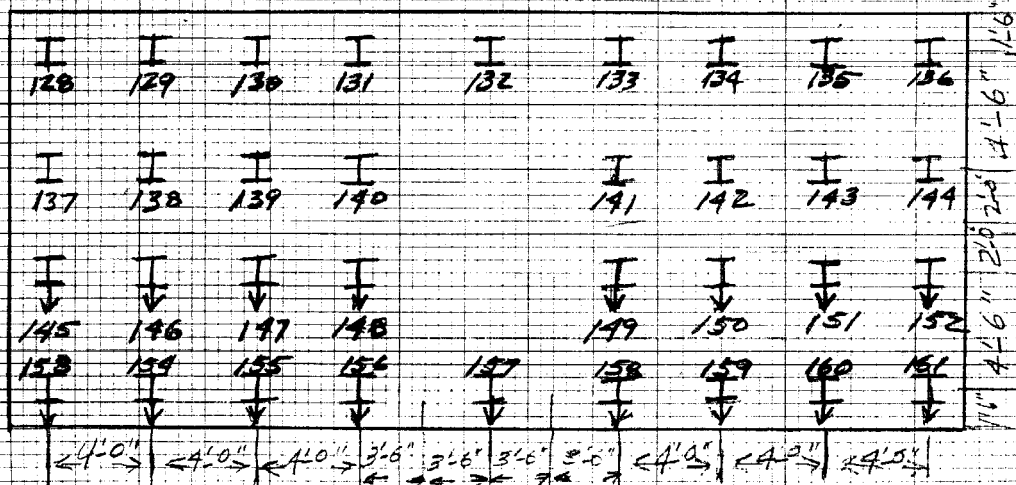 128 129 130 131 132 133 134 135 136
137 138 139 140 141 142 143 144
145 146 147 148 149 150 151 152
153 154 155 156 157 158 159 160 161
4'-0" 4'-0" 4'-0" 3'-6" 3'-6" 3'-6" 3'-6" 4'-0" 4'-0" 4'-0"
1'-6" 4'-6" 2'-0" 2'-0" 4'-6" 1'-6"